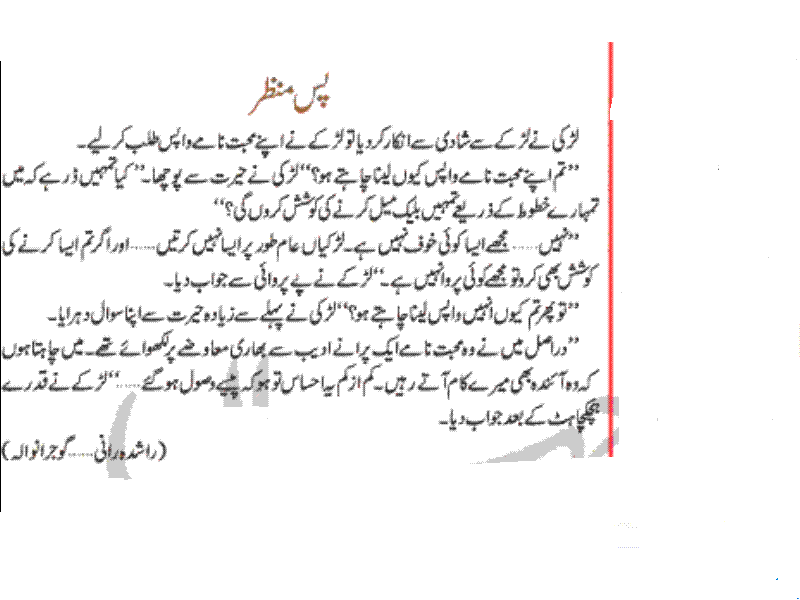 پس منظر
لڑکی نے لڑکے سے شادی سے انکار کر دیا تو لڑکے نے اپنے محبت نامے واپس طلب کر لیے۔
’’تم اپنے محبت نامے واپس کیوں لینا چاہتے ہو؟‘‘ لڑکی نے حیرت سے پوچھا۔ ’’کیا تمہیں ڈر ہے کہ میں
تمہارے خطوط کے ذریعے تمہیں بلیک میل کرنے کی کوشش کروں گی؟‘‘
’’نہیں...... مجھے ایسا کوئی خوف نہیں ہے۔ لڑکیاں عام طور پر ایسا نہیں کرتیں...... اور اگر تم ایسا کرنے کی
کوشش بھی کرو تو مجھے کوئی پروا نہیں ہے۔‘‘ لڑکے نے بے پروائی سے جواب دیا۔
’’تو پھر تم کیوں انہیں واپس لینا چاہتے ہو؟‘‘ لڑکی نے پہلے سے زیادہ حیرت سے اپنا سوال دہرایا۔
’’دراصل میں نے وہ محبت نامے ایک پرانے ادیب سے بھاری معاوضے پر لکھوائے تھے۔ میں چاہتا ہوں
کہ وہ آئندہ بھی میرے کام آتے رہیں۔ کم از کم یہ احساس تو ہو کہ پیسے وصول ہو گئے......‘‘ لڑکے نے قدرے
ہچکچاہٹ کے بعد جواب دیا۔
(راشدہ رانی...... گوجرانوالہ)